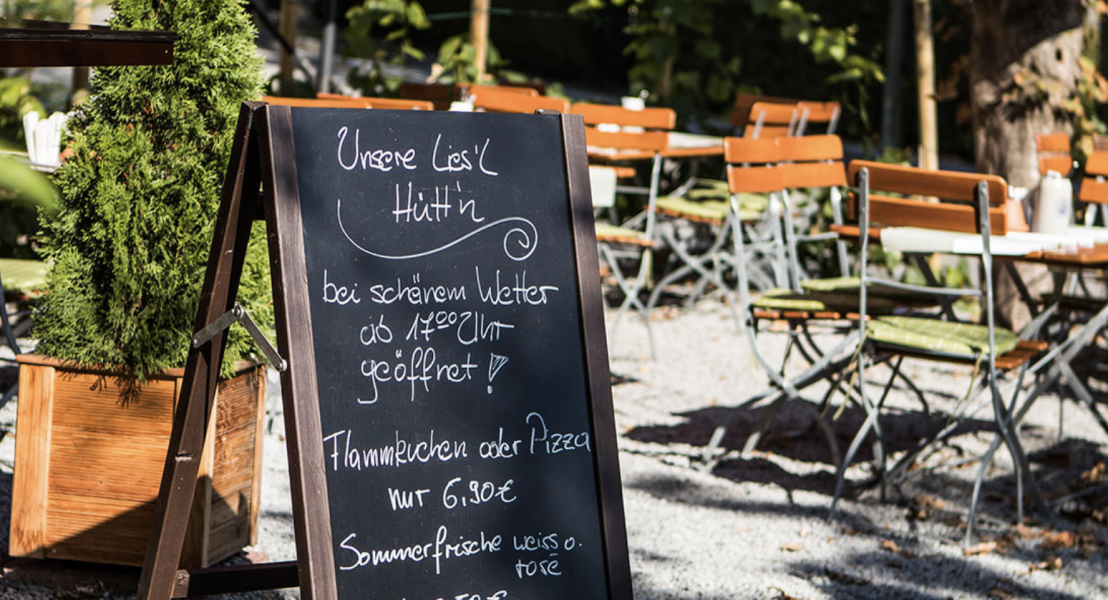 Unsere Lies'l
Hütt'n
bei schönem Wetter
ab 17⁰⁰ Uhr
geöffnet!
Flammkuchen oder Pizza
nur 6,90€
Sommerfrische weiss o.
rosé